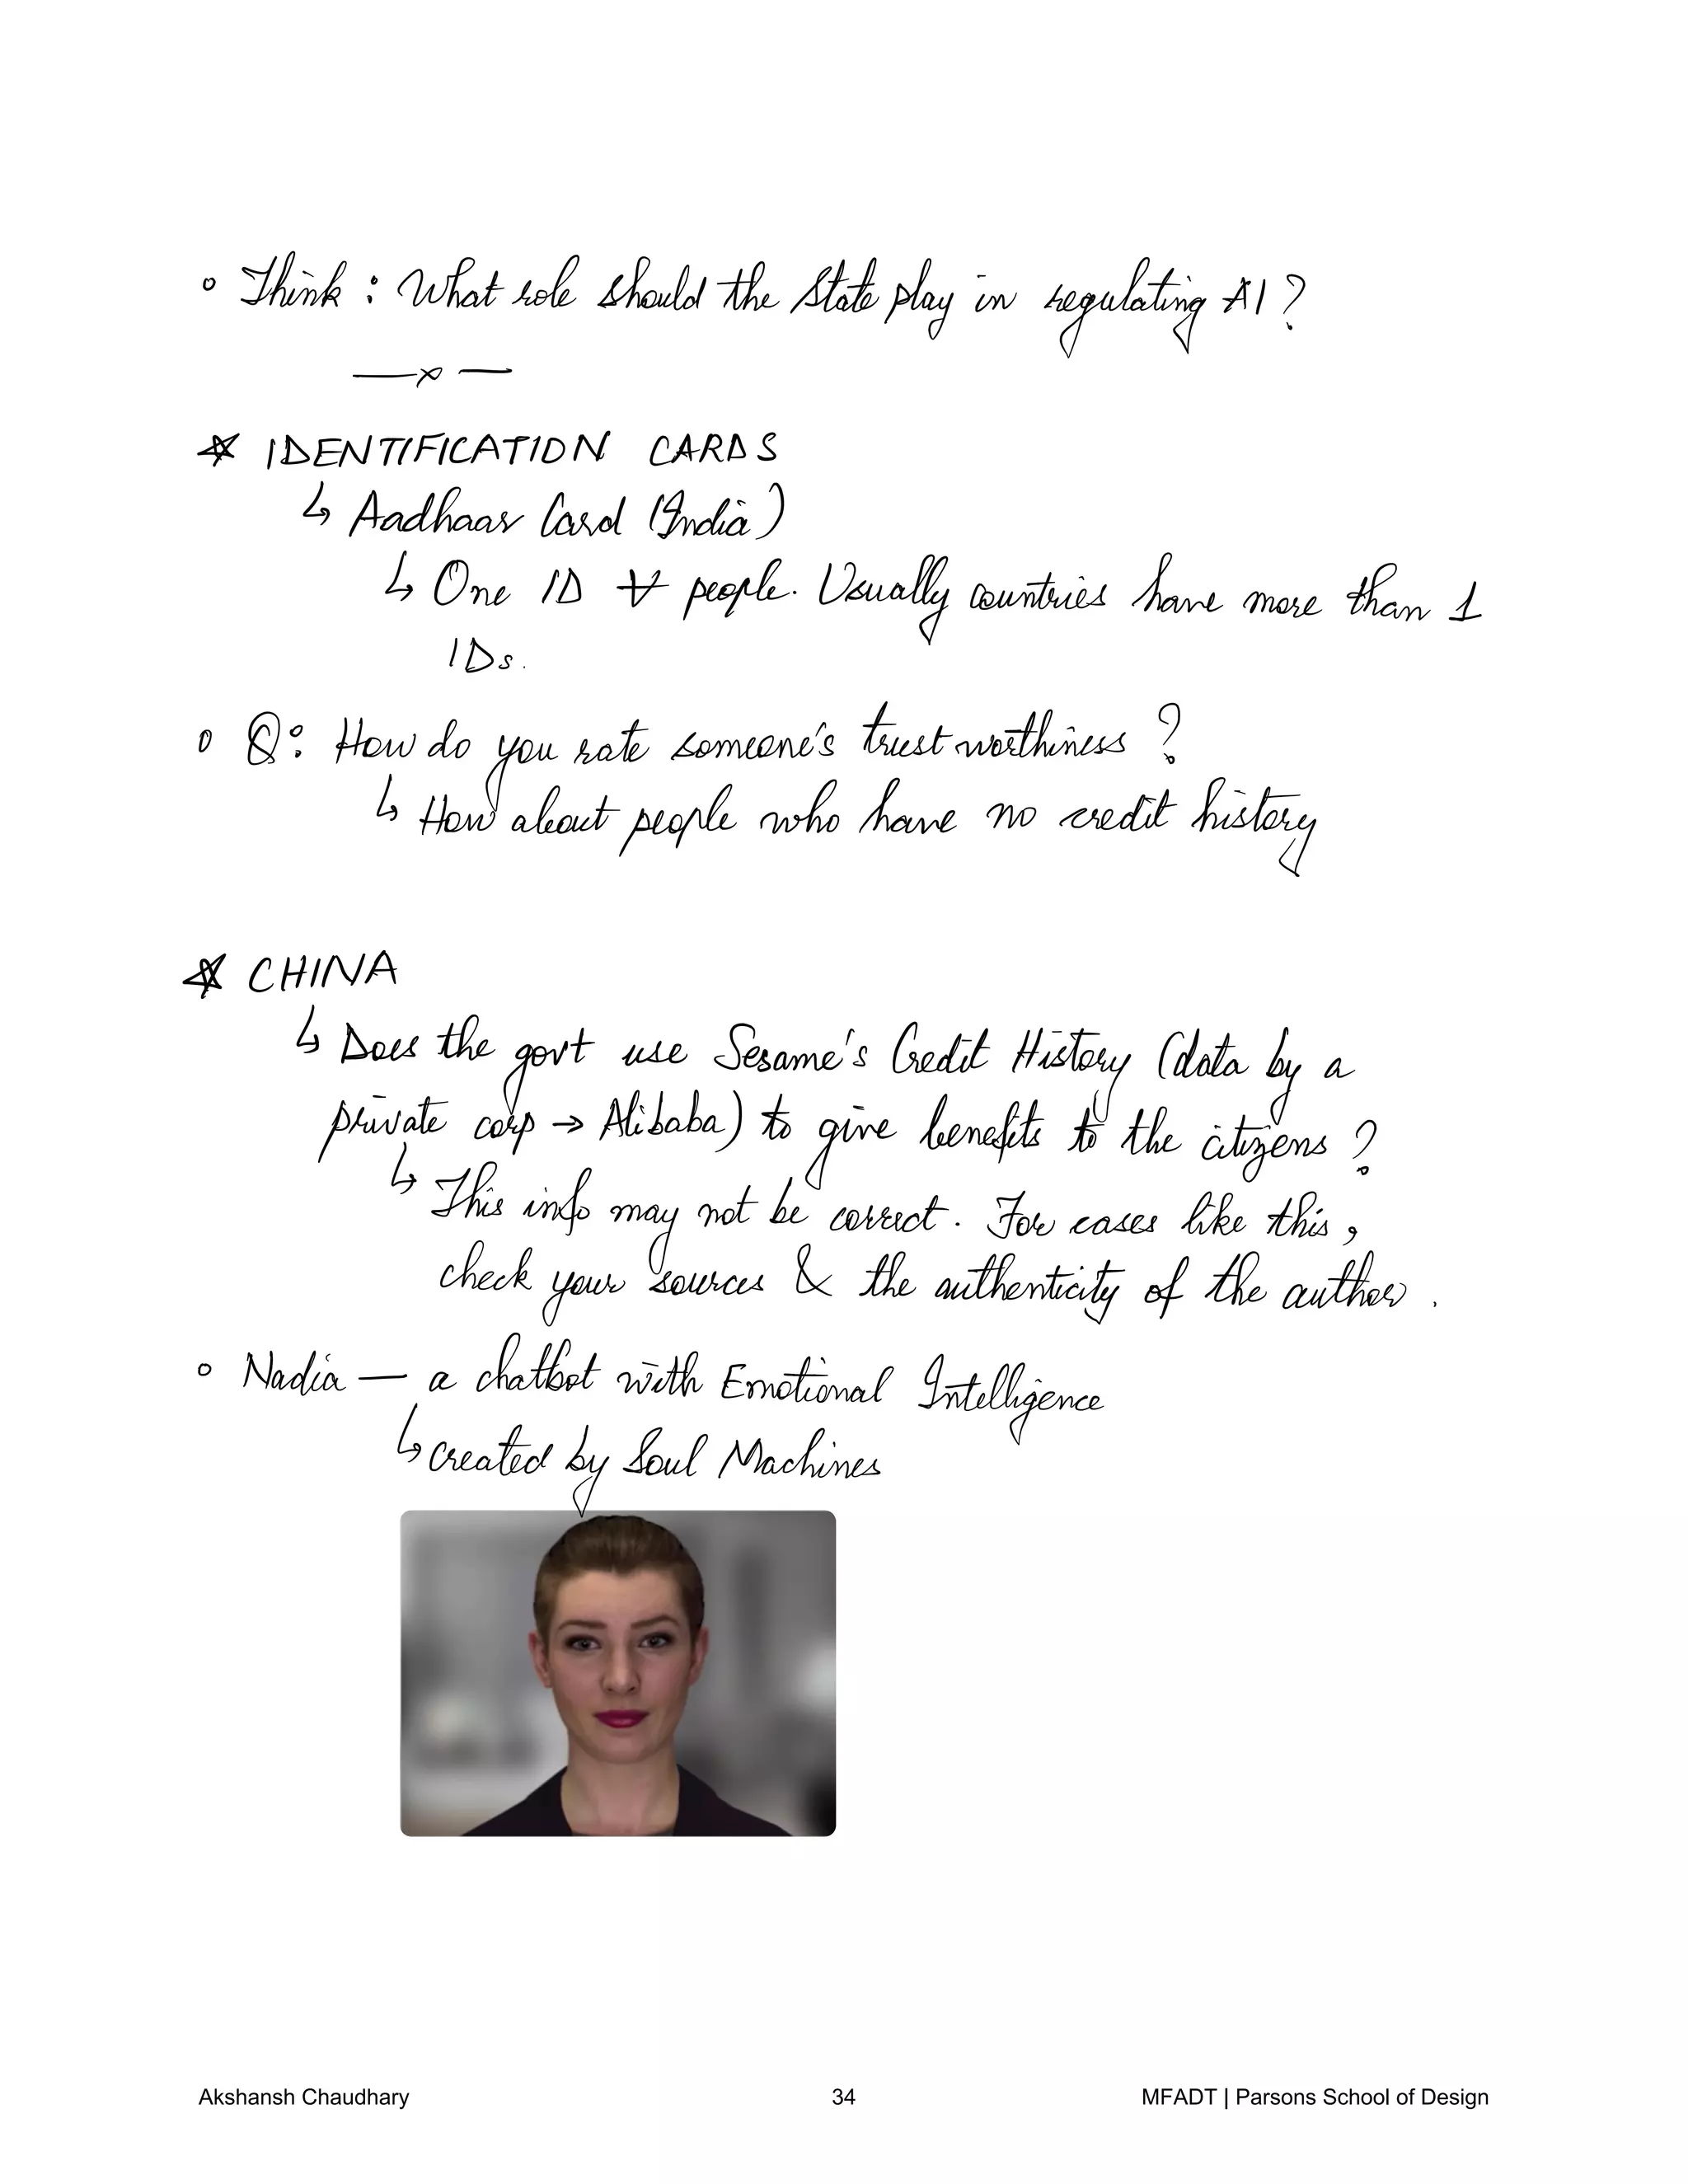 ◦ Think : What role should the State play in regulating AI ?
—x—
☆ IDENTIFICATION CARDS
↳ Aadhaar Card (India)
↳ One ID ∀ people. Usually countries have more than 1
IDs.
◦ Q: How do you rate someone's trustworthiness ?
↳ How about people who have no credit history
☆ CHINA
↳ Does the govt use Sesame's Credit History (data by a
private corp → Alibaba) to give benefits to the citizens ?
↳ This info may not be correct. For cases like this,
check your sources & the authenticity of the author.
◦ Nadia — a chatbot with Emotional Intelligence
↳ created by Soul Machines
Akshansh Chaudhary 34 MFADT | Parsons School of Design